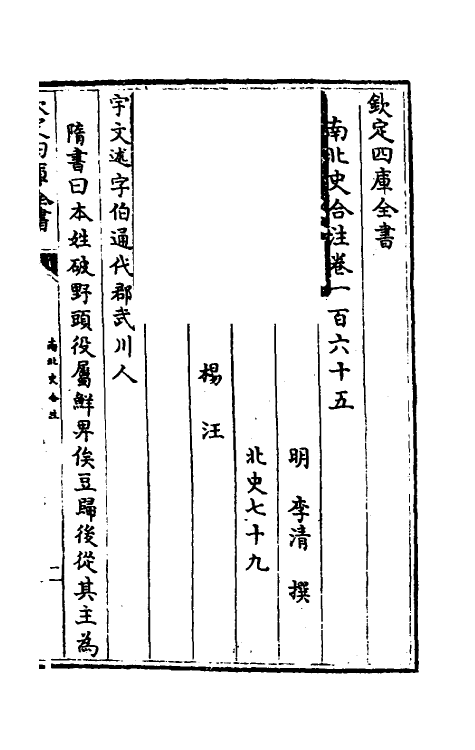 欽定四庫全書
南北史合注卷一百六十五
明 李清 撰
北史七十九
楊汪
宇文述字伯通代郡武川人
隋書曰本姓破野頭役屬鮮卑俟豆歸後從其主為
欽定四庫全書
南北史合注